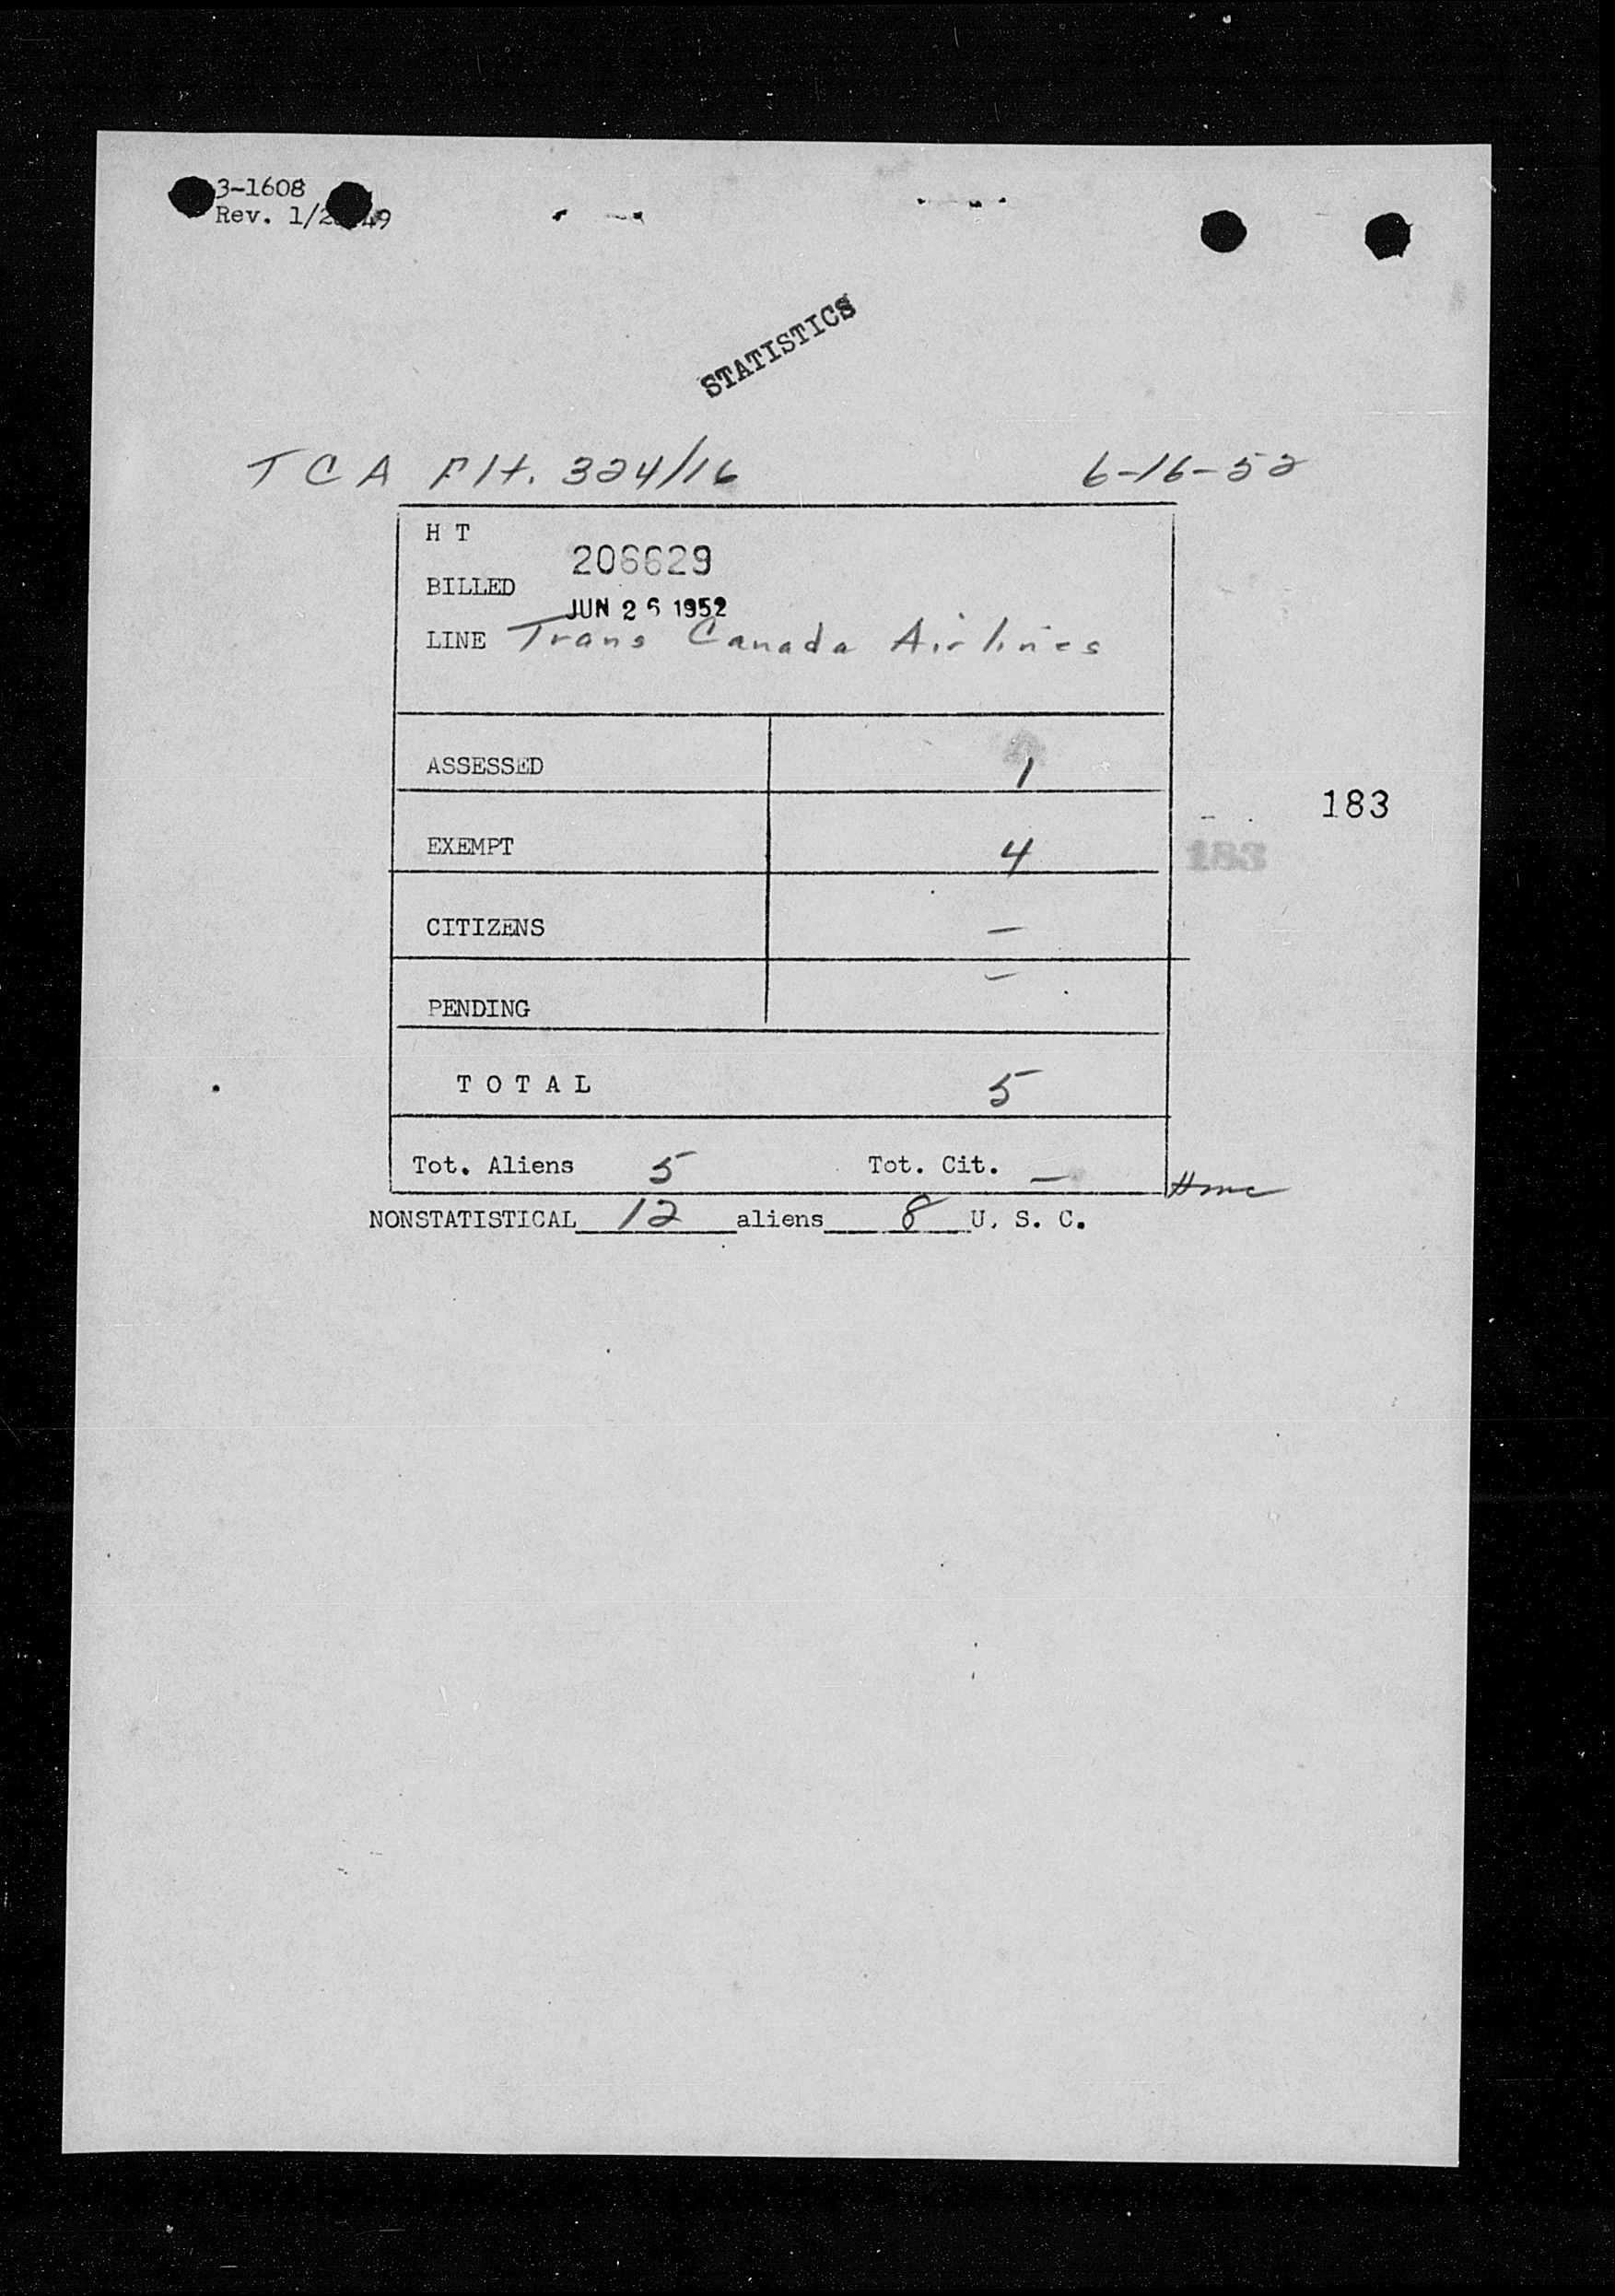 3-1608
Rev. 1/2 49
STATISTICS
TCA Flt. 324/16 6-16-52
H T
206629
BILLED
JUN 26 1952
LINE Trans Canada Airlines
ASSESSED 1
183
EXEMPT 4
183
CITIZENS –
PENDING –
TOTAL 5
Tot. Aliens 5 Tot. Cit. –
NONSTATISTICAL 12 aliens 8 U. S. C.